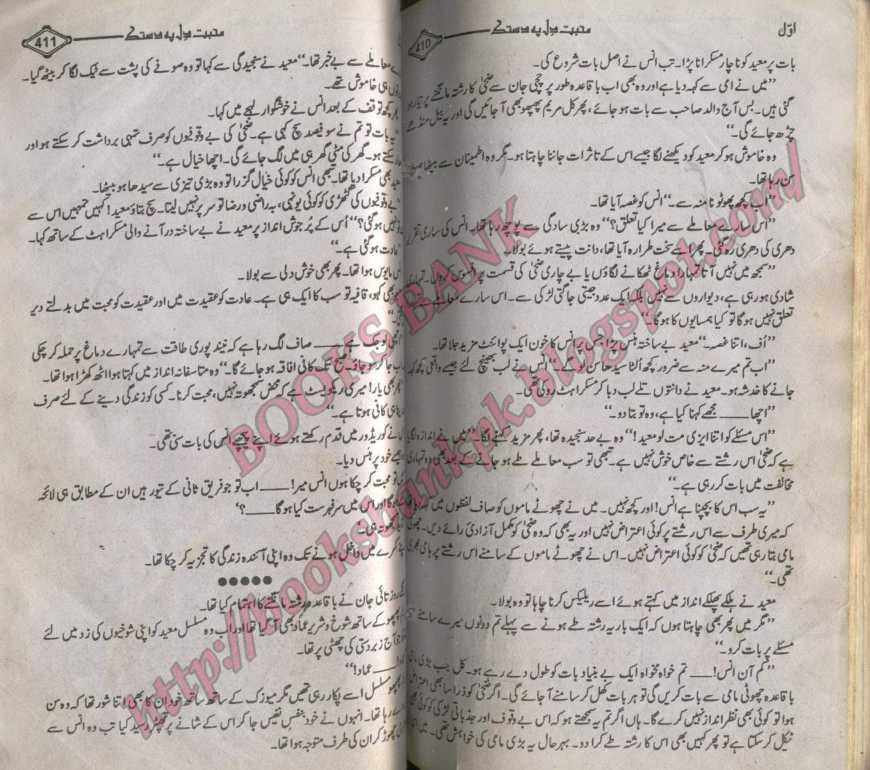 اوّل
محبت دل پہ دستک
410
بات پر معید کو ناچار مسکرانا پڑا۔ تب انس نے اصل بات شروع کی۔
”میں نے امی سے کہہ دیا ہے اور وہ بھی اب باقاعدہ طور پر چچی جان سے ضحیٰ کا رشتہ مانگنے پر تیار ہو
گئی ہیں۔ بس آج والد صاحب سے بات ہو جائے، پھر کل مریم پھپھو بھی آ جائیں گی اور یہ بیل منڈھے
چڑھ جائے گی۔“
وہ خاموش ہو کر معید کو دیکھنے لگا جیسے اس کے تاثرات جاننا چاہتا ہو۔ مگر وہ اطمینان سے بیٹھا
سن رہا تھا۔
”اب کچھ پھوٹو نا منہ سے۔“ انس کو غصہ آیا تھا۔
”اس سارے معاملے سے میرا کیا تعلق؟“ وہ بڑی سادگی سے پوچھ رہا تھا۔ انس کی ساری تقریر
دھری کی دھری رہ گئی۔ پھر اسے سخت طرارہ آیا تھا، دانت پیستے ہوئے بولا۔
”سمجھ میں نہیں آتا تمہارا دماغ ٹھکانے لگاؤں یا بے چاری ضحیٰ کی قسمت پر افسوس کروں۔ تمہاری
شادی ہو رہی ہے، دیواروں سے نہیں بلکہ ایک عدد جیتی جاگتی لڑکی سے۔ اس سارے معاملے سے
تعلق نہیں ہو گا تو کیا ہمسایوں کا ہو گا۔“
”اُف، اتنا غصہ۔“ معید بے ساختہ ہنس پڑا جس پر انس کا خون ایک پوائنٹ مزید جلا تھا۔
”اب تم میرے منہ سے ضرور کچھ اُلٹا سیدھا سن لو گے۔“ انس نے لب بھینچ لئے جیسے واقعی کچھ کہہ
جانے کا خدشہ ہو۔ معید نے دانتوں تلے لب دبا کر مسکراہٹ روکی تھی۔
”اچھا ـــــ مجھے کہنا کیا ہے، وہ تو بتا دو۔“
”اس مسئلے کو اتنا ایزی مت لو معید!“ وہ بے حد سنجیدہ تھا، پھر مزید کہنے لگا۔ ”میں نے اندازہ لگایا
ہے کہ ضحیٰ اس رشتے سے خاص خوش نہیں ہے۔ تبھی تو سب معاملے طے ہو جانے کے بعد بھی وہ تمہاری
مخالفت میں بات کر رہی ہے۔“
”یہ سب اس کا بچپنا ہے انس! اور کچھ نہیں۔ میں نے چھوٹے ماموں کو صاف لفظوں میں کہہ دیا
کہ میری طرف سے اس رشتے پر کوئی اعتراض نہیں اور یہ بھی کہ وہ ضحیٰ کو مکمل آزادیٔ رائے دیں۔ چھوٹی
مامی بتا رہی تھیں کہ ضحیٰ کو کوئی اعتراض نہیں ہے۔ اس نے چھوٹے ماموں کے سامنے اس رشتے پر ہامی بھری
تھی۔“
معید نے ہلکے پھلکے انداز میں کہتے ہوئے اسے ریلیکس کرنا چاہا تو وہ بولا۔
”مگر میں پھر بھی چاہتا ہوں کہ ایک بار یہ رشتہ طے ہونے سے پہلے تم دونوں میرے سامنے
مسئلے پر بات کرو۔“
”کم آن انس! ـــــ تم خواہ مخواہ ایک بے بنیاد بات کو طول دے رہے ہو۔ کل جب بڑی مامی
باقاعدہ چھوٹی مامی سے بات کریں گی تو ہر بات کھل کر سامنے آ جائے گی۔ اگر ضحیٰ کو ذرا سا بھی اعتراض
ہوا تو کوئی بھی نظر انداز نہیں کرے گا۔ ہاں اگر تم یہ سمجھتے ہو کہ اس بے وقوف اور جذباتی لڑکی کو کوئی
ٹیکل کر سکتا ہے تو پھر کہیں بھی اس کا رشتہ طے کرا دو۔ بہرحال یہ بڑی مامی کی خواہش تھی۔ میں
محبت دل پہ دستک
411
معاملے سے بے خبر تھا۔“ معید نے سنجیدگی سے کہا تو وہ صوفے کی پشت سے ٹیک لگا کر بیٹھ گیا۔
ہی خاموش تھے۔
کچھ توقف کے بعد انس نے خوشگوار لہجے میں کہا۔
”یہ بات تو تم نے سو فیصد سچ کہی ہے۔ ضحیٰ کی بے وقوفیوں کو صرف تمہی برداشت کر سکتے ہو اور
سکتے ہو۔ گھر کی مٹی گھر ہی میں لگ جائے گی۔ اچھا خیال ہے۔“
معید بھی مسکرا دیا تھا۔ تبھی انس کو کوئی خیال گزرا تو وہ بڑی تیزی سے سیدھا ہو بیٹھا۔
”بے وقوفیوں کی گٹھڑی کو کوئی یونہی، بہ راضی و رضا تو سر پر نہیں لیتا۔ سچ بتاؤ معید! کہیں تمہیں اس سے
نہیں ہو گئی؟“ اُس کے پُرجوش انداز پر معید نے بے ساختہ در آنے والی مسکراہٹ کے ساتھ کہا۔
”عادت ہو گئی ہے۔“
مایوس ہوا تھا۔ پھر بھی خوش دلی سے بولا۔
کہو، قافیہ تو سب کا ایک ہی ہے۔ عادت کو عقیدت میں اور عقیدت کو محبت میں بدلتے دیر
ـــــ صاف لگ رہا ہے کہ نیند پوری طاقت سے تمہارے دماغ پر حملہ کر چکی
جا کر سو جاؤ۔ صبح تک کافی افاقہ ہو جائے گا۔“ وہ متاسفانہ انداز میں کہتا ہوا اٹھ کھڑا ہوا تھا۔
پھر بھی یار! میری ریکویسٹ ہے کہ محض سمجھوتہ نہیں، محبت کرنا۔ کسی کو زندگی دینے کے لئے صرف
ہی کافی ہوتا ہے۔“
نے کوریڈور میں قدم رکھتے ہوئے اپنے پیچھے انس کی بات سنی تھی۔
خود پر ہنس دیا۔
تو محبت کر چکا ہوں انس میر! ـــــ اب تو جو فریق ثانی کے تیور ہیں ان کے مطابق ہی لائحہ
ہو گا اور اس میں سرفہرست کیا ہو گا ـــــ؟“
سمجھوتہ ہی۔“
کمرے میں داخل ہونے تک وہ اپنی آئندہ زندگی کا تجزیہ کر چکا تھا۔
●●●●●
کے روز تائی جان نے باقاعدہ رشتہ مانگنے کا اہتمام کیا تھا۔
پھپھو کے ساتھ شوخ و شریر عماد بھی آ گیا تھا اور اب وہ مسلسل معید کو اپنی شوخیوں کی زد میں لئے
آج زبردستی کی چھٹی پر تھا۔
عماد!“
پھپھو مسلسل اسے پکار رہی تھیں مگر میوزک کے ساتھ ساتھ خود ان کا بھی اتنا شور تھا کہ وہ سن
رہا تھا۔ انہوں نے خود بنفس نفیس جا کر اس کے شانے پر تھپڑ رسید کیا تب وہ انس سے
چھوڑ کر ان کی طرف متوجہ ہوا تھا۔
BOOKS BANK
http://booksbankpk.blogspot.com/